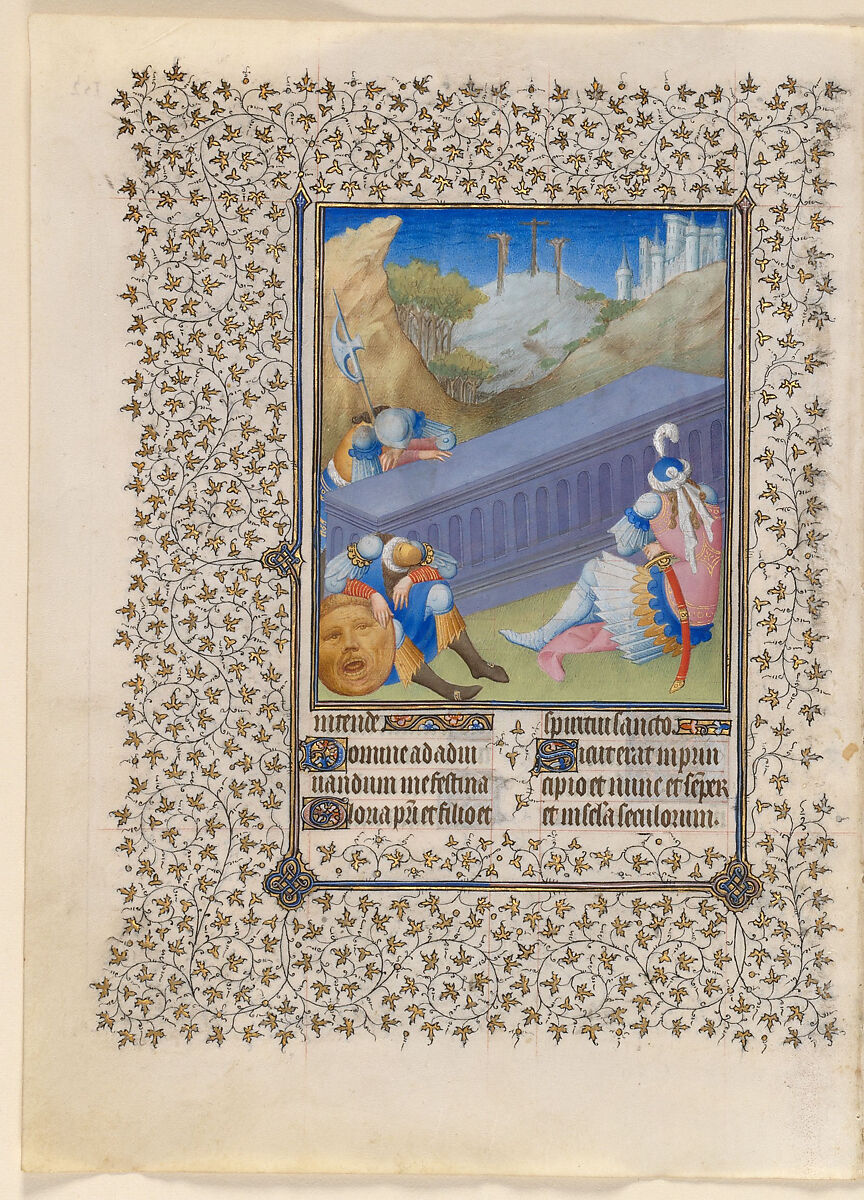 intende.
Domine ad adiu
uandum me festina
Gloria pri et filio et
spiritui sancto.
Sicut erat in prin
cipio et nunc et semper
et in scla seculorum.